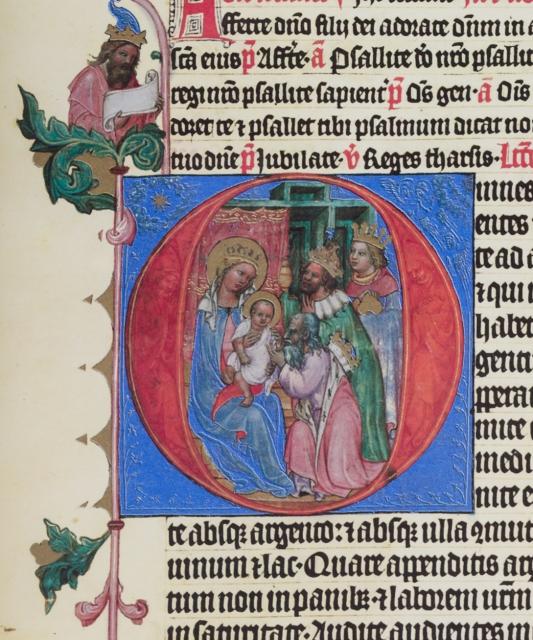 Afferte dn̄o filij dei adorate dn̄im in a
sc̄ā eius p̄ Affer̄te · a Psallite dō nr̄o psallit
regi nr̄o psallite sapient̄ p̄ Om̄s gen · a Om̄s
doret te ⁊ psallet tibi psalmum dicat no
tuo dn̄e p̄ Jubilate · v̄ Reges tharsis · Lc̄c
mnes
entes
te ad a
⁊ qui
habet
gentū
ꝓpera
mite
medi
nite e
te absqꝫ argento : ⁊ absqꝫ ulla ꝯmut
uinum ⁊ lac · Quare appenditis arg
tum non in panibꝫ ⁊ laborem ur̄m
in saturitate · Audite audientes m